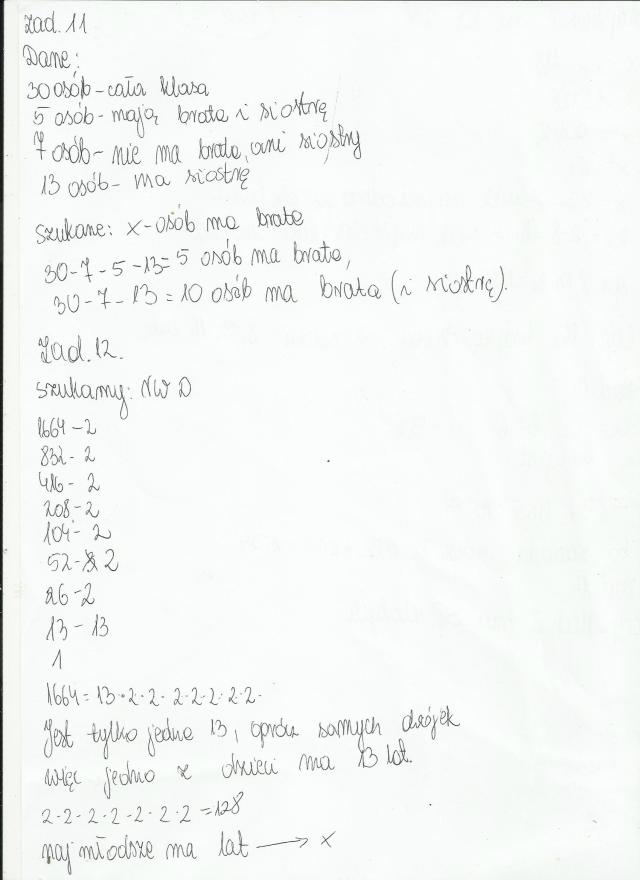 Zad. 11
Dane:
30 osób - cała klasa
5 osób - mają brata i siostrę
7 osób - nie ma brata, ani siostry
13 osób - ma siostrę
szukane: x - osób ma brata
30-7-5-13=5 osób ma brata,
30-7-13=10 osób ma brata (i siostrę).
Zad. 12.
szukamy: NWD
1664 - 2
832 - 2
416 - 2
208 - 2
104 - 2
52 - 2
26 - 2
13 - 13
1
1664 = 13·2·2·2·2·2·2·2·
Jest tylko jedna 13, oprócz samych dwójek
więc jedno z dzieci ma 13 lat.
2·2·2·2·2·2·2=128
najmłodsze ma lat → x